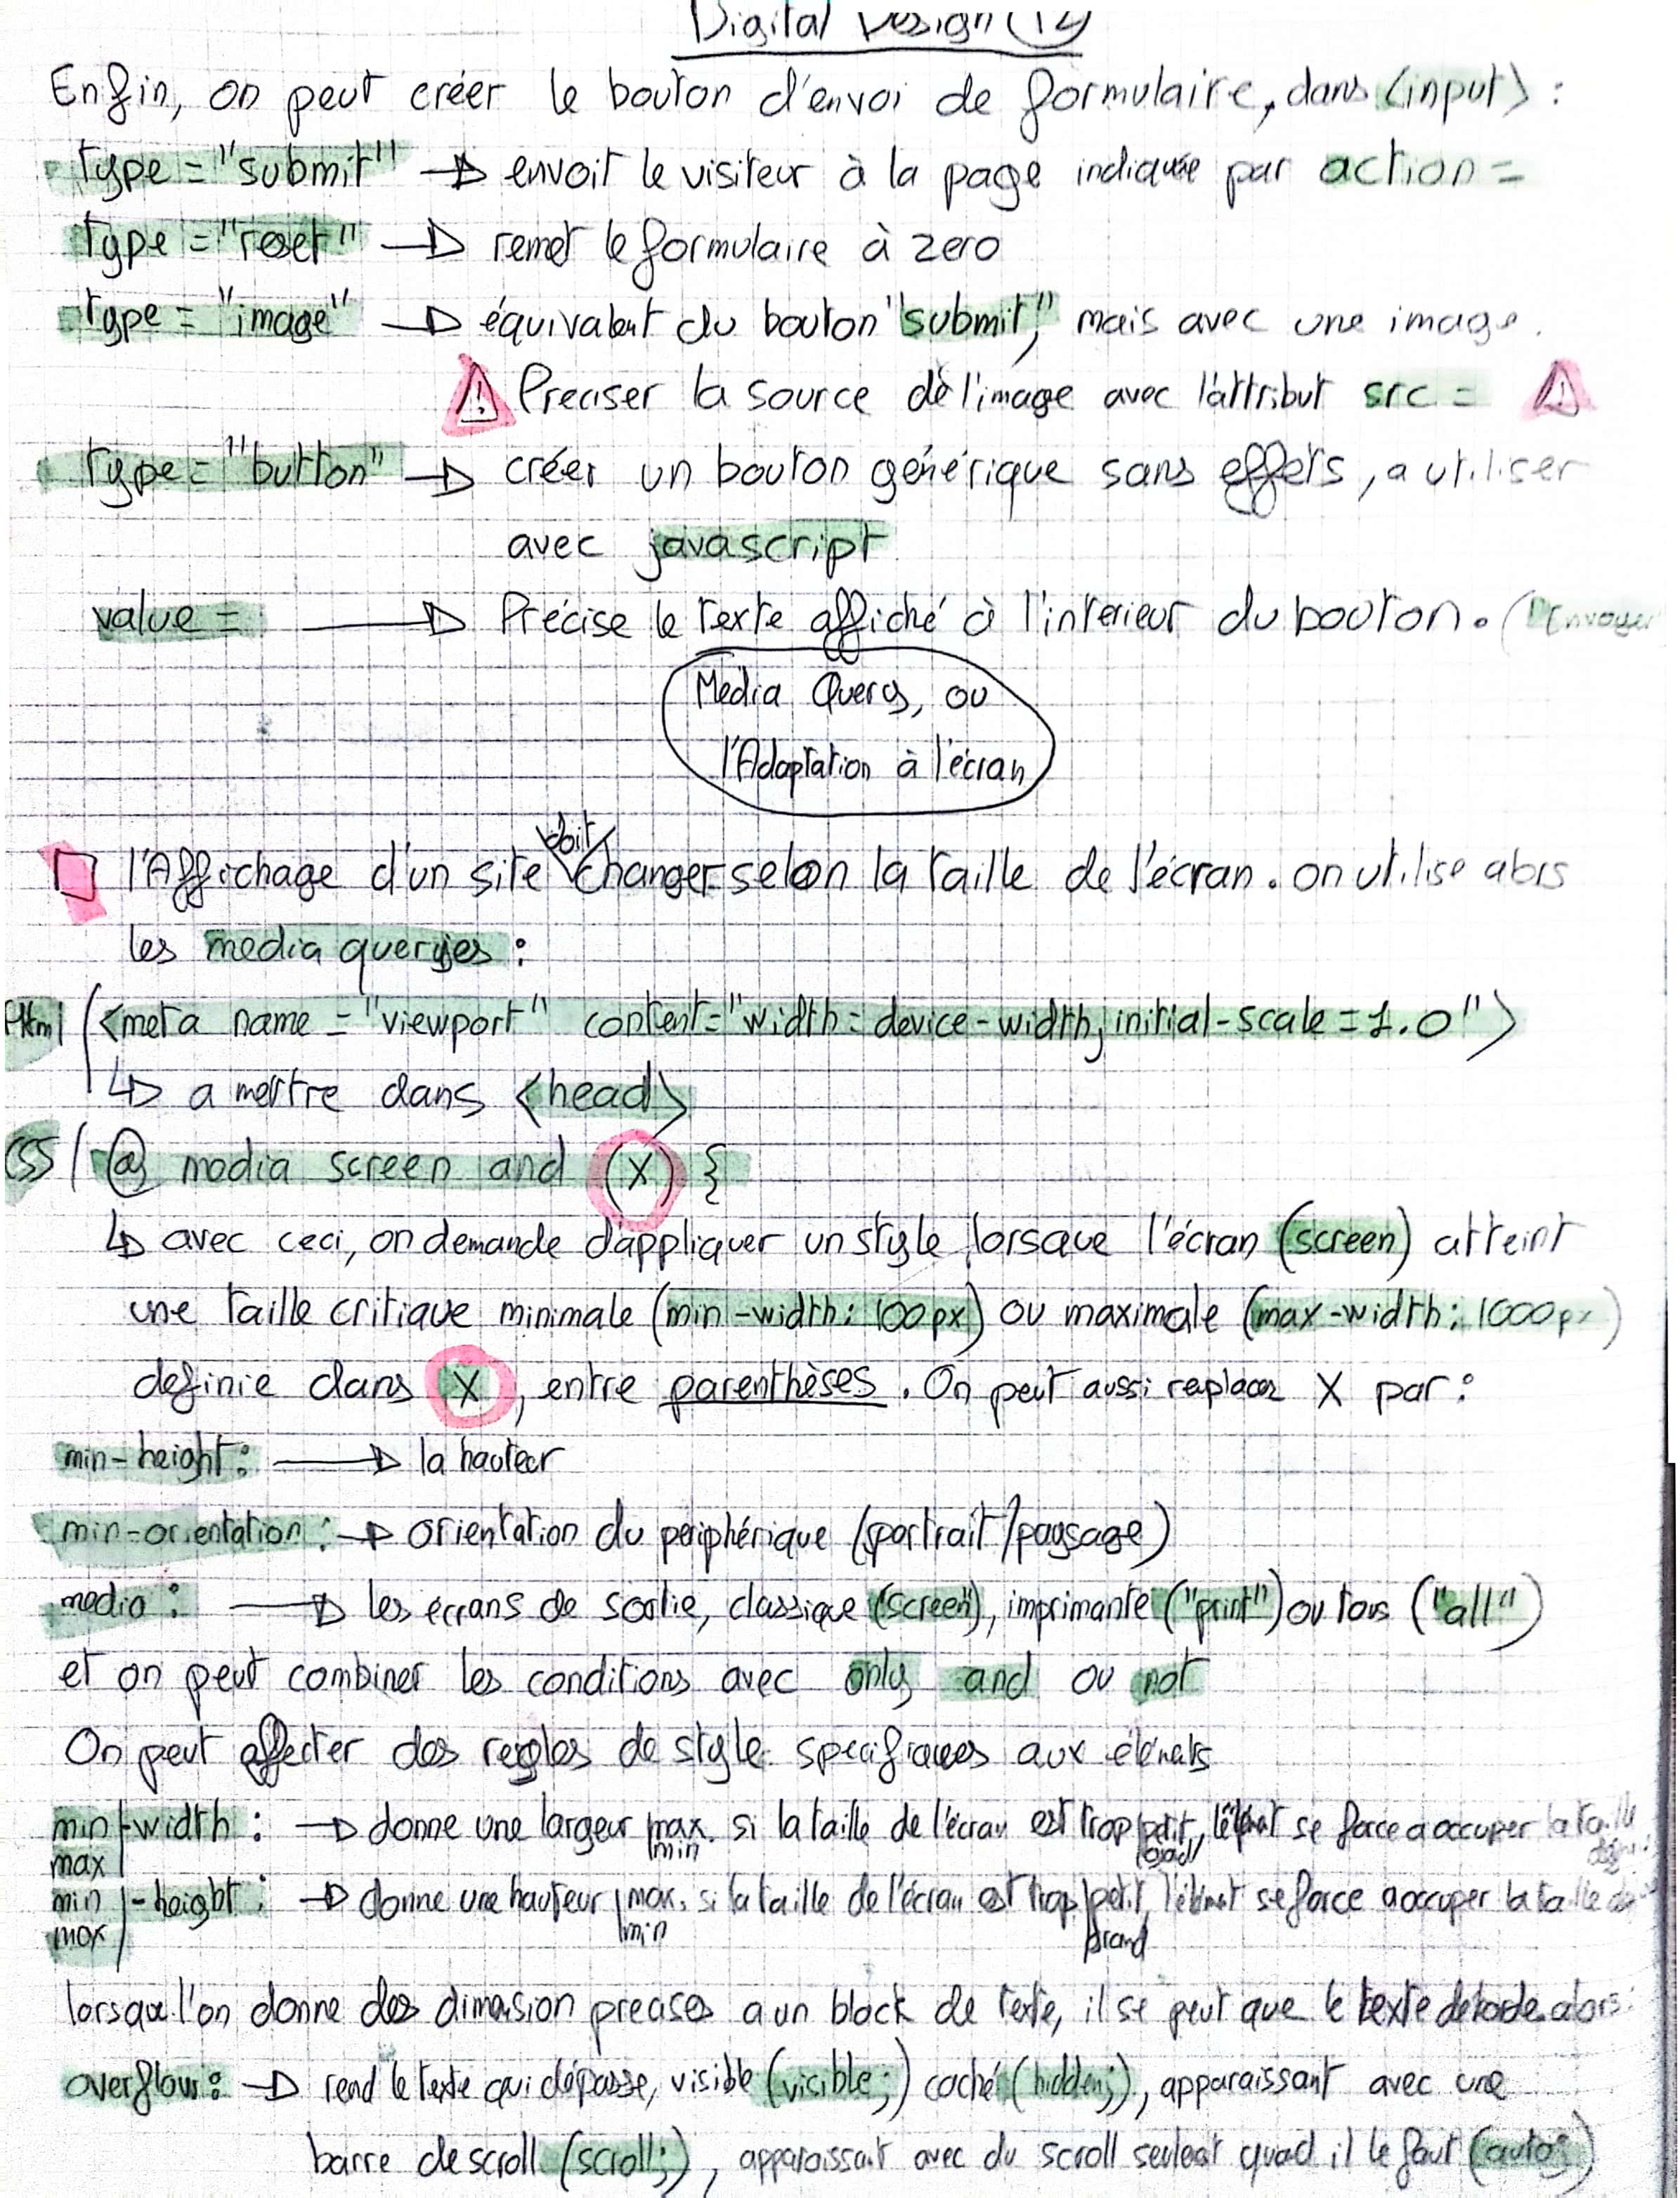 Digital Design (12)
Enfin, on peut créer le bouton d'envoi de formulaire, dans <input> :
type = "submit" → envoit le visiteur à la page indiquée par action =
type = "reset" → remet le formulaire à zero
type = "image" → équivalent du bouton "submit", mais avec une image.
⚠ Preciser la source de l'image avec l'attribut src = ⚠
type = "button" → créer un bouton générique sans effets, a utiliser
avec javascript
value = → Précise le texte affiché à l'interieur du bouton. ("Envoyer
Media Query, ou
l'Adaptation à l'écran
l'Affichage d'un site doit changer selon la taille de l'écran. on utilise alors
les media queryies :
Html <meta name = "viewport" content="width = device-width; initial-scale = 1.0">
↳ a mettre dans <head>
CSS @ media screen and (X) {
↳ avec ceci, on demande d'appliquer un style lorsque l'écran (screen) atteint
une taille critique minimale (min-width: 100px) ou maximale (max-width: 1000px)
definie dans X, entre parenthèses. On peut aussi replacer X par :
min-height: → la hauteur
min-orientation : → orientation du periphérique (portrait/paysage)
media : → les écrans de sortie, classique (screen"), imprimante ("print") ou tous ("all")
et on peut combiner les conditions avec only and ou not
On peut affecter des regles de style specifiques aux éléments
min max -width : → donne une largeur max. min si la taille de l'écran est trop petit, grand l'élément se force a occuper la taille
min max -height : → donne une hauteur max. min si la taille de l'écran est trop petit, grand l'élément se force a occuper la taille
lorsque l'on donne des dimension precises a un block de texte, il se peut que le texte deborde. alors :
overflow : → rend le texte qui dépasse, visible (visible;) caché (hidden;), apparaissant avec une
barre de scroll (scroll;), apparaissant avec du scroll seulement quand il le faut (auto;)